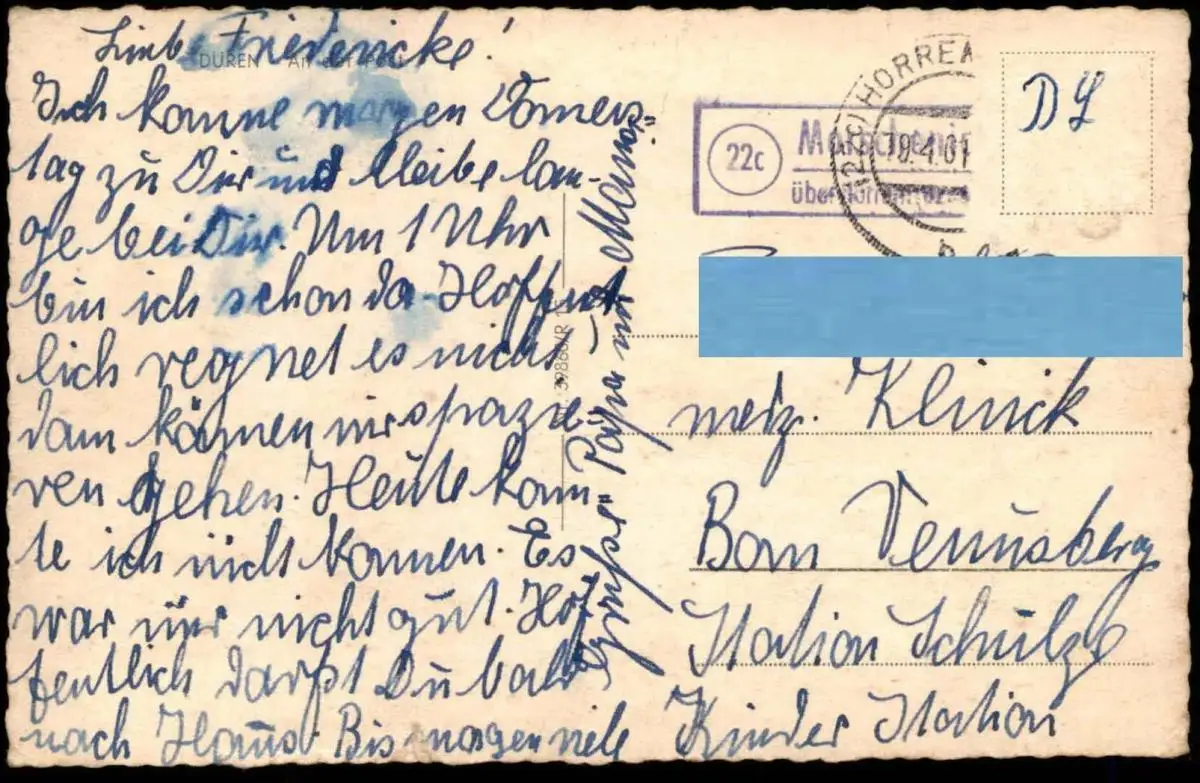 Liebe Friedericke!
DÜREN An der Post
Ich komme morgen Donners-
tag zu Dir und bleibe lan-
ge bei Dir. Um 1 Uhr
bin ich schon da. Hoffent-
lich regnet es nicht
dann können wir spazie-
ren gehen. Heute konn-
te ich nicht kommen. Es
war mir nicht gut. Hof-
fentlich darfst Du bald
nach Haus. Bis morgen viele
Grüße Papa und Mama
22c
Morschenich
über
(22c) HORREM
19.4.61
DL
mediz. Klinick
Bonn Venusberg
Station Schulze
Kinder Station